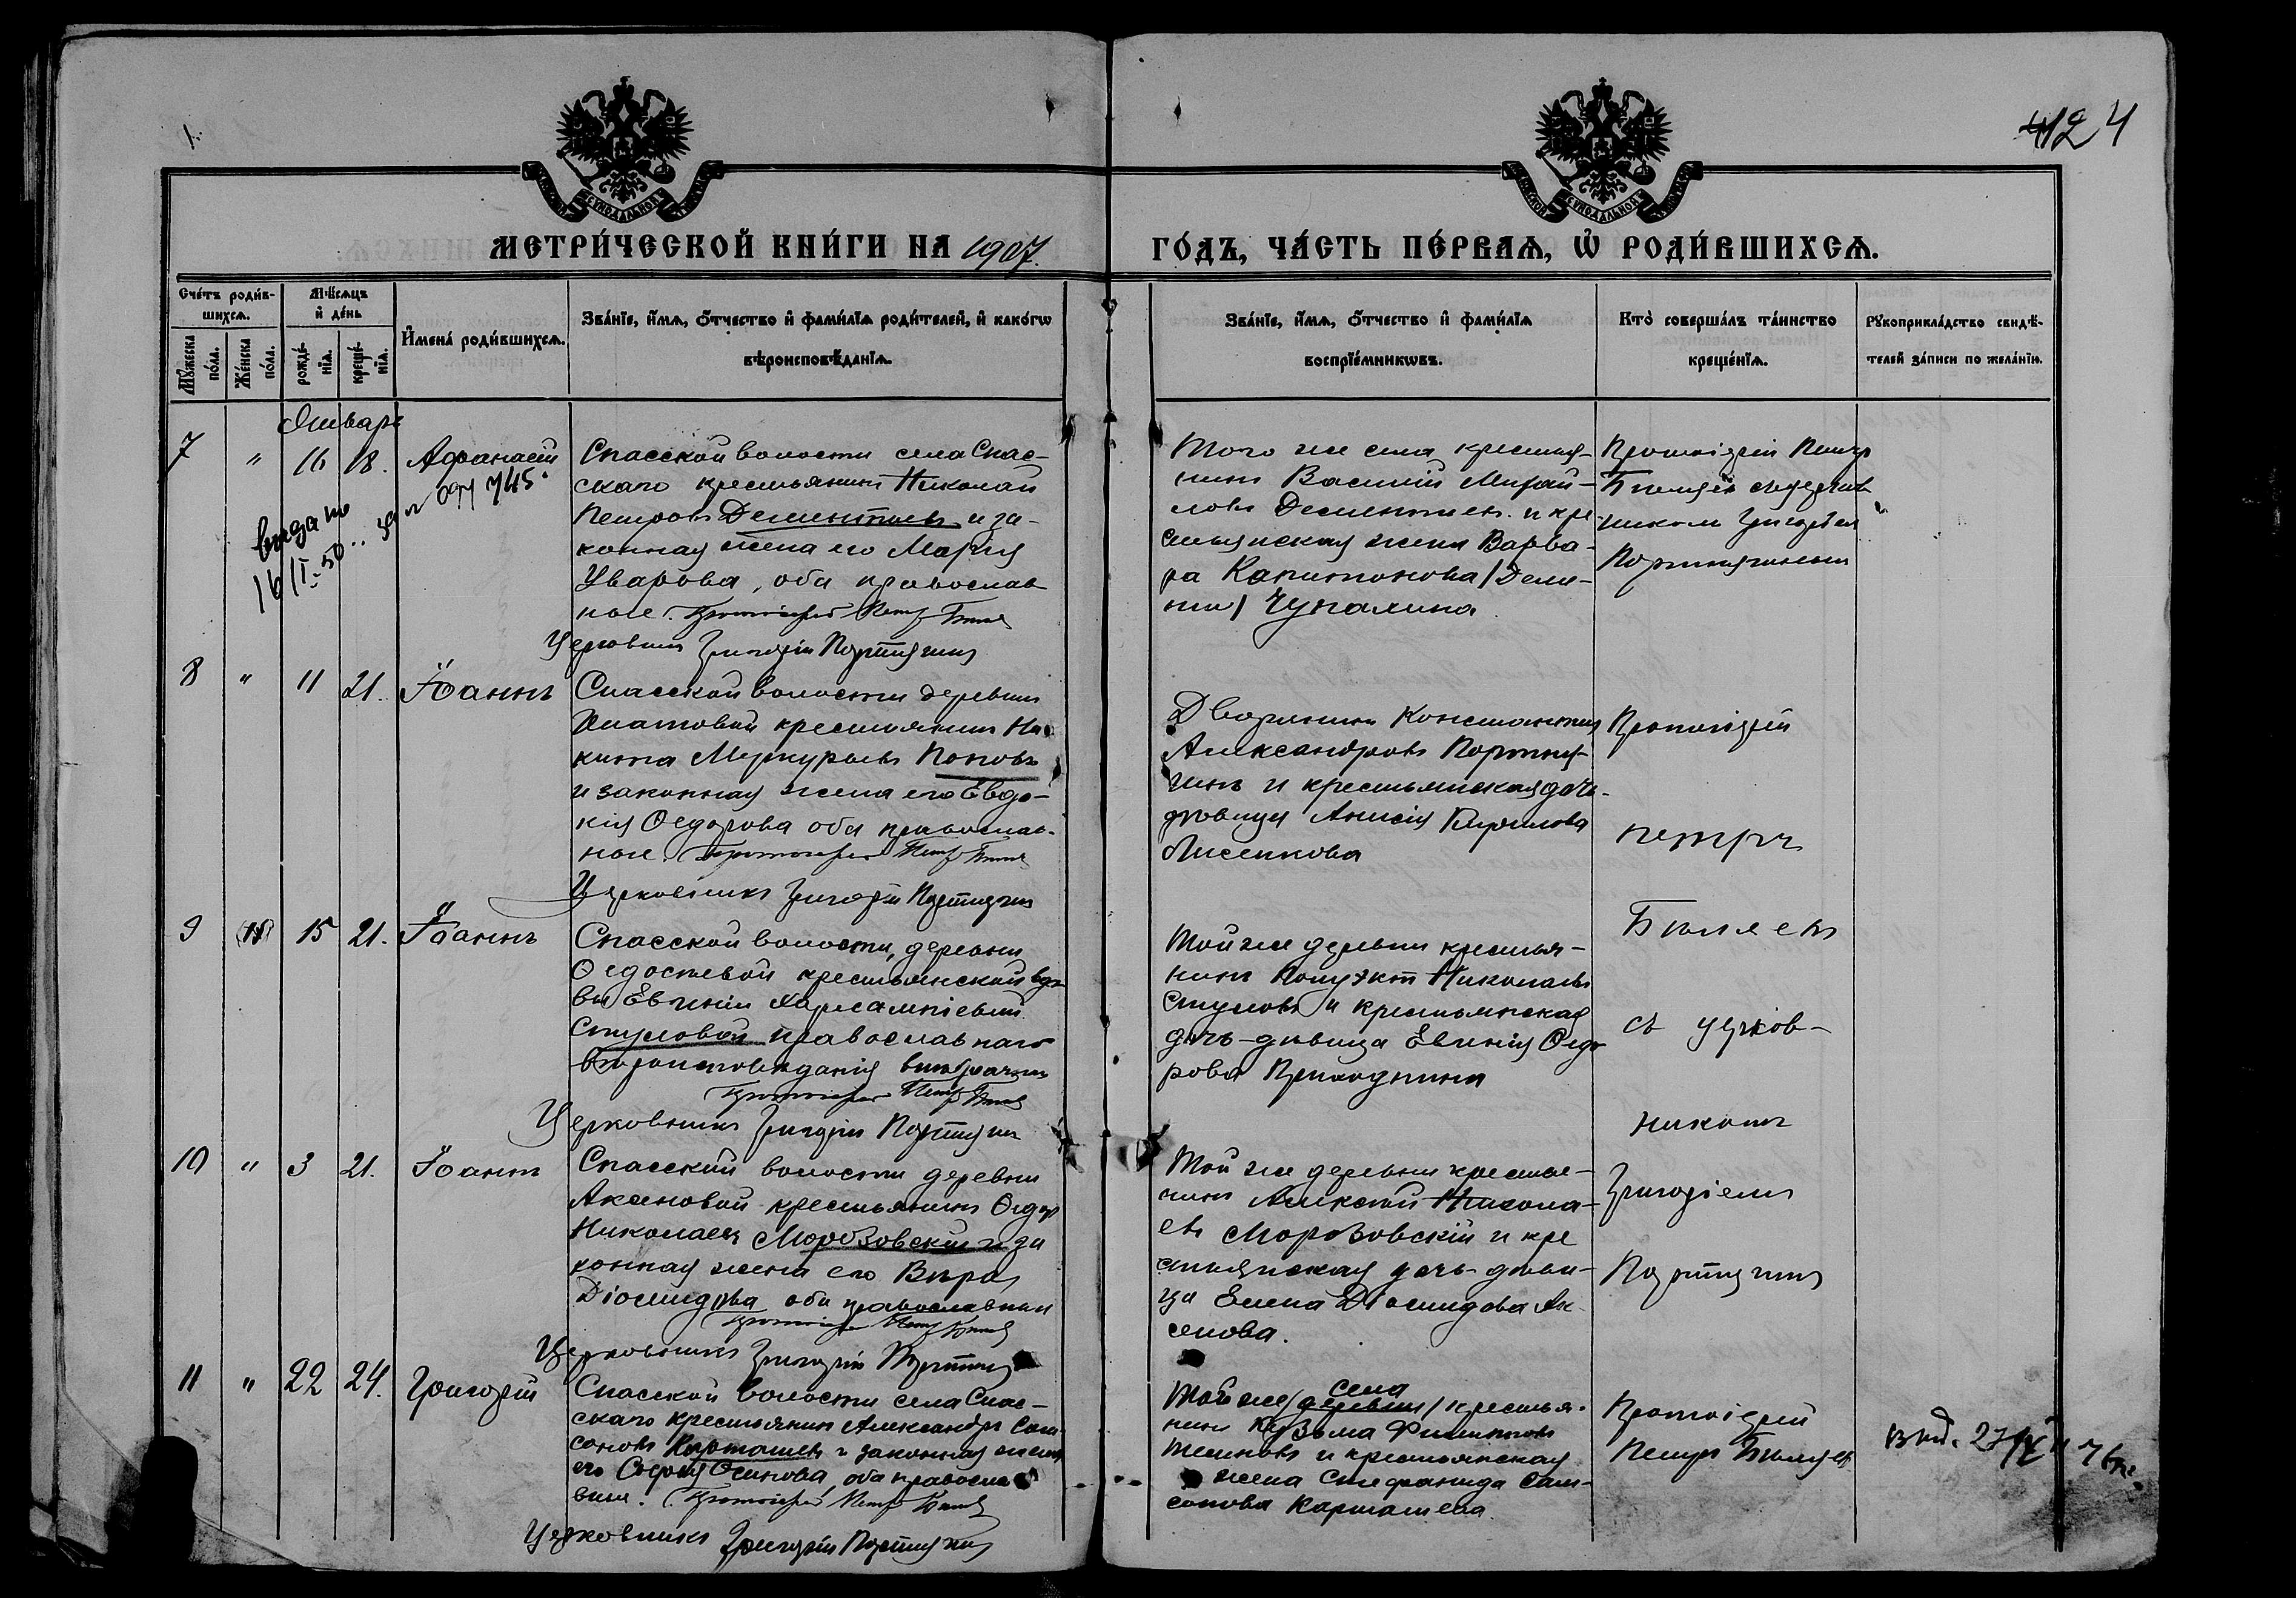 4124
МЕТРИ́ЧЕСКОЙ КНИ́ГИ НА 1907.
ГО́ДЪ, ЧА́СТЬ ПЕ́РВАѦ, Ѡ҆ РОДИ́ВШИХСѦ.
Сче́тъ роди́в-
шихсѧ.
Мѣ́сѧцъ
и҆ де́нь
И҆мена́ роди́вшихсѧ.
Зва́нїе, и҆́мѧ, ѻ҆́тчество и҆ фами́лїѧ роди́телей, и҆ како́гѡ
вѣроисповѣ́данїѧ.
Мꙋ́жеска
по́ла.
Же́нска
по́ла.
рожде́-
нїѧ.
креще́-
нїѧ.
Зва́нїе, и҆́мѧ, ѻ҆́тчество и҆ фами́лїѧ
воспрїе́мникѡвъ.
Кто̀ соверша́лъ та́инство
креще́нїѧ.
Рꙋкоприкла́дство свидѣ́-
телей за́писи по жела́нїю.
Январь
7 " 16 18. Афанасій
Спасской волости села Спас-
скаго крестьянинъ Николай
Петровъ Дементьевъ и за-
конная жена его Марія
Уварова, оба православ
ные. Протоіерей Петръ Бѣляевъ
Церковникъ Григорій Портнягинъ
выдано
16/I-50
745
Того же села крестья-
нинъ Василій Михай-
ловъ Дементьевъ и кре-
стьянская жена Варва-
ра Капитонова /Деме-
нти/ Чупалина
Протоіерей Петръ
Бѣляевъ съ церков
никомъ Григоріемъ
Портнягинымъ
8 " 11 21. Іоаннъ
Спасской волости деревни
Игнатовой крестьянинъ Ни
кита Меркурьевъ Поповъ
и законная жена его Евдо-
кія Ѳедорова оба православ-
ные. Протоіерей Петръ Бѣляевъ
Церковникъ Григорій Портнягинъ
Дворянинъ Константинъ
Александровъ Портня-
гинъ и крестьянская дочь-
дѣвица Анисія Кирилова
Лисенкова
Протоіерей
Петръ
Бѣляевъ
съ церков-
никомъ
Григоріемъ
Портнягинымъ
9 15 21. Іоаннъ
Спасской волости, деревни
Ѳедосѣевой крестьянской вдо
вы Евгеніи Харлампіевой
Стуловой православнаго
вѣроисповѣданія внѣбрачный
Протоіерей Петръ Бѣляевъ
Церковникъ Григорій Портнягинъ
Той же деревни крестья-
нинъ Полуэктъ Николаевъ
Стуловъ и крестьянская
дочь-дѣвица Евгенія Ѳедо
рова Приходкина
10 " 3 21. Іоаннъ
Спасской волости деревни
Аксеновой крестьянинъ Ѳедоръ
Николаевъ Морозовскій и за
конная жена его Вѣра
Діомидова оба православные
Протоіерей Петръ Бѣляевъ
Церковникъ Григорій Портнягинъ
Той же деревни крестья-
нинъ Алексѣй Никола-
евъ Морозовскій и кре
стьянская дочь-дѣви-
ца Елена Діомидова Ак-
сенова.
11 " 22 24. Григорій
Спасской волости села Спас-
скаго крестьянинъ Александръ Сам-
соновъ Карташевъ и законная жена
его Софія Осипова, оба правосла
вные. Протоіерей Петръ Бѣляевъ
Церковникъ Григорій Портнягинъ
села
Той же /деревни/ крестья-
нинъ Кузьма Филипповъ
и крестьянская
жена Стефанида Сам-
сонова Карташева.
Протоіерей
Петръ Бѣляевъ